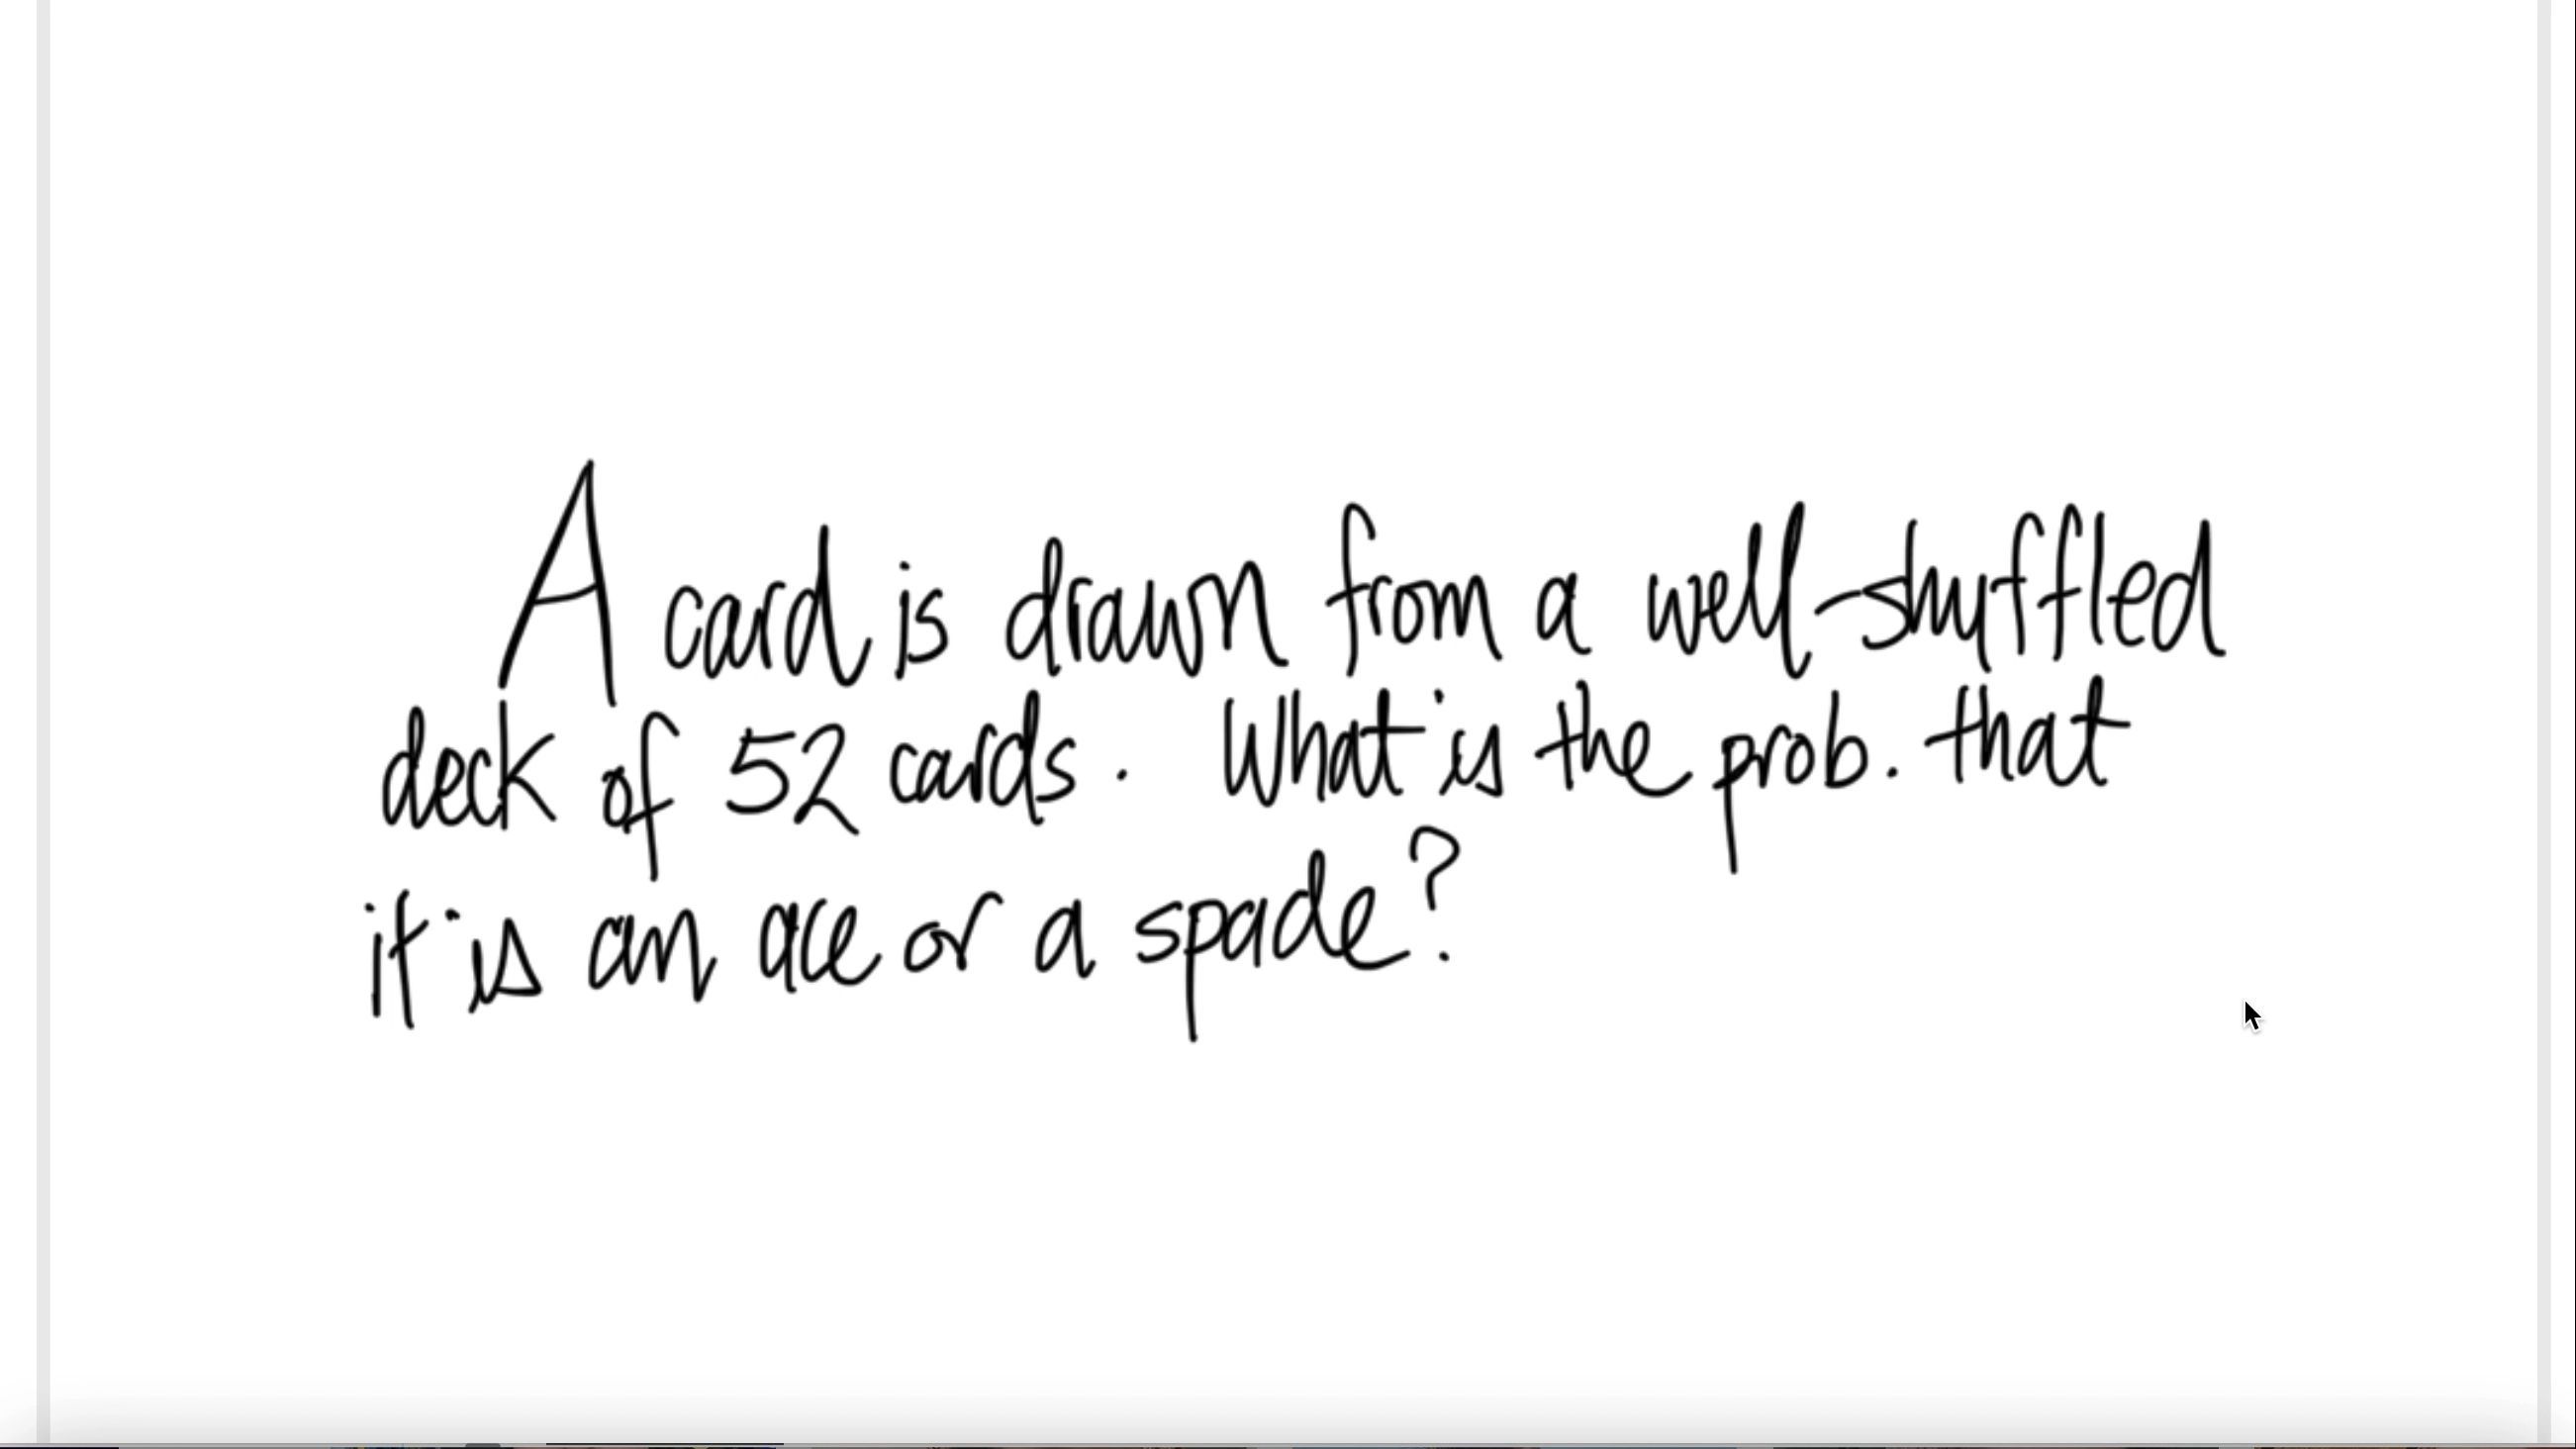 A card is drawn from a well-shuffled
deck of 52 cards. What is the prob. that
it is an ace or a spade?